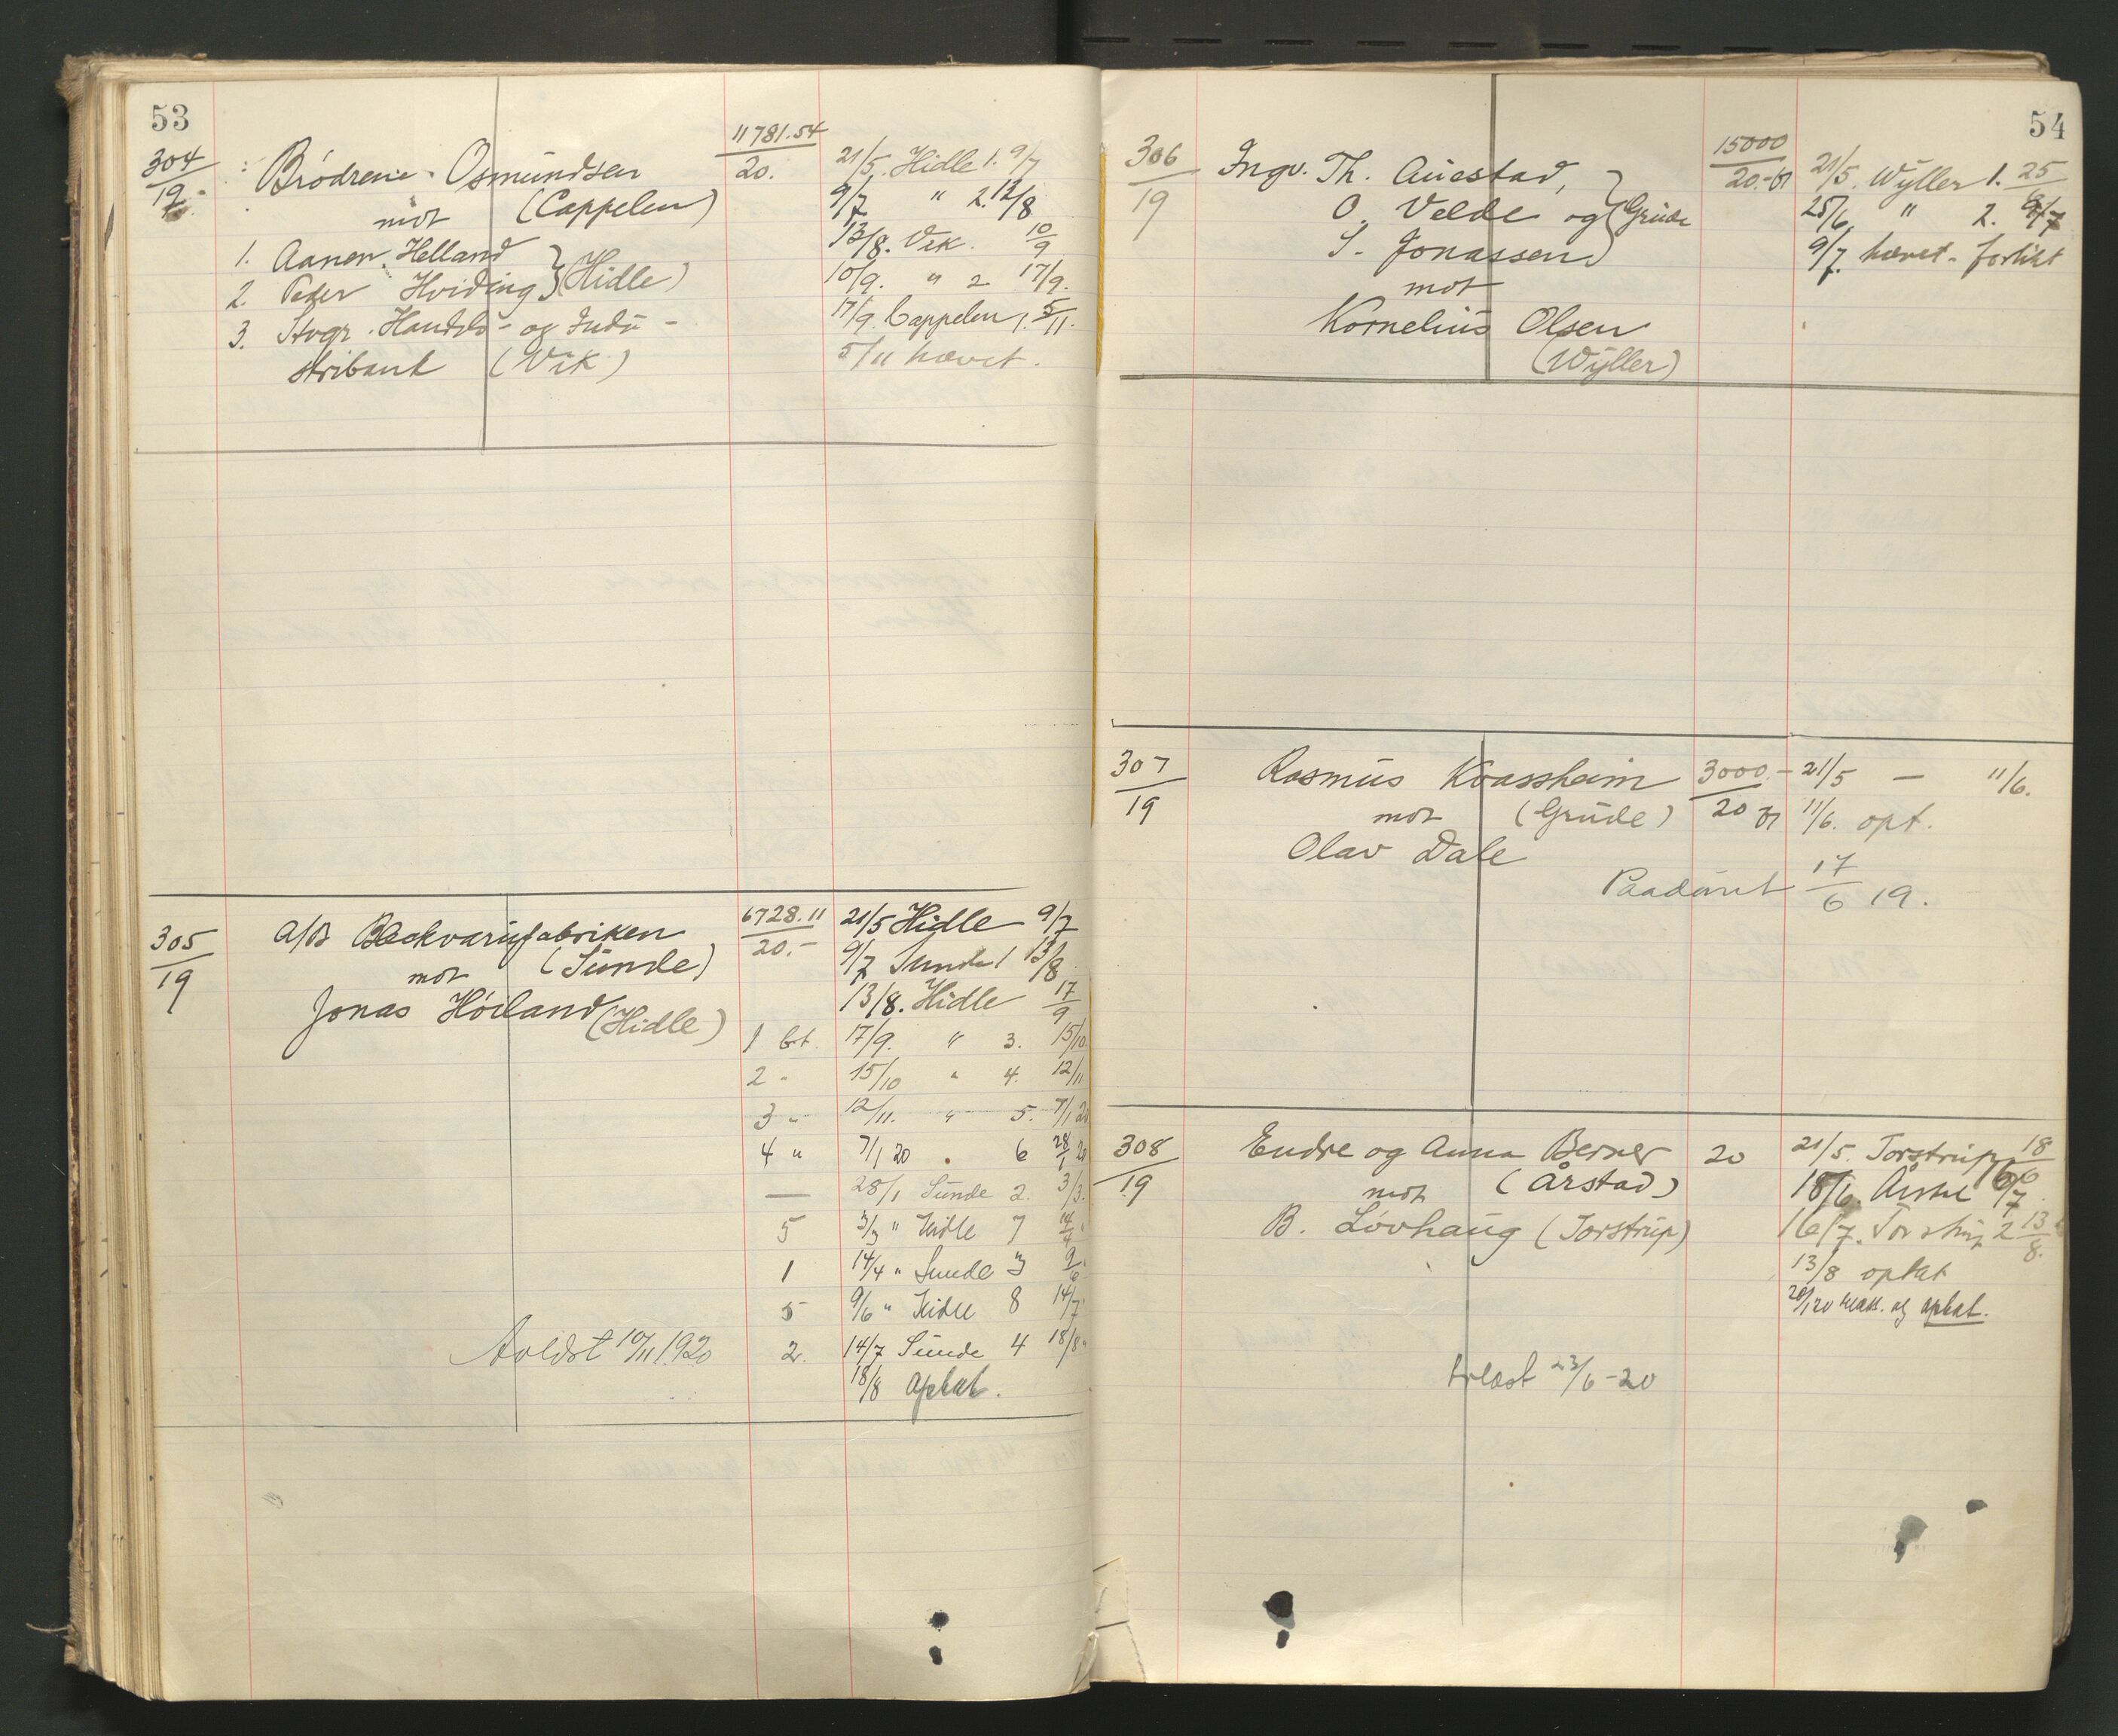 53
304
19.-
Brödrene Osmundsen
mot (Cappelen)
1. Aanen Helland
2. Peder Hviding } (Hidle)
3. Stvgr. Handels- og Indu-
stribank (Vik)
11781.54
20.
21/5. Hidle 1. 9/7
9/7 " 2. 13/8
13/8. Vik. 10/9
10/9. " 2 17/9.
17/9. Cappelen 1. 5/11.
5/11 hævet.
305
19
A/S Blackvarefabriken
mot (Sunde)
Jonas Höiland (Hidle)
6728.11
20.-
21/5 Hidle 9/7
9/7 Sunde 1 13/8
13/8. Hidle 17/9
1 bt. 17/9. " 3. 15/10
2 " 15/10 " 4. 12/11
3 " 12/11. " 5. 7/1 20
4 " 7/1 20 " 6 28/1 20
— 28/1 Sunde 2. 3/3.
5 3/3 " Hidle 7 14/4 "
1 14/4 " Sunde 3 9/6 "
5 9/6 " Hidle 8 14/7 "
2. 14/7 Sunde 4 18/8 "
18/8 optat.
Avldst 10/11 1920
54
306
19
Ingv. Th. Auestad,
O. Velde og } (Grude
S. Jonassen
mot
Kornelius Olsen
(Wyller)
15000
20.-
21/5. Wyller 1. 25/6
25/6 " 2. 9/7
9/7. hævet - forlikt
307
19
Rasmus Kvassheim
mot (Grude)
Olav Dale
3000.-
20
21/5 — 11/6.
11/6. opt.
Paadömt 17/6 19.
308
19
Endre og Anna Berner
mot (Årstad)
B. Lövhaug (Torstrup)
20
21/5. Torstrup 18/6
18/6. Årstad 16/7
16/7. Torstrup 2 13/8.
13/8 optat
20/1 20 reass. og optat.
23/6 -20